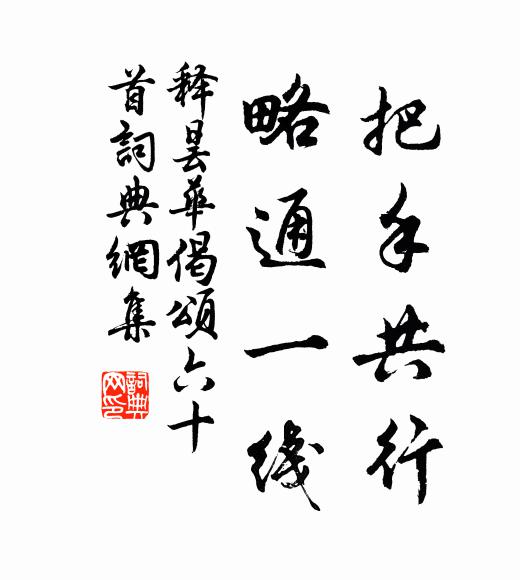 把手共行
略通一线
释昙华偈颂六十
首詞典網集
詞典
网印